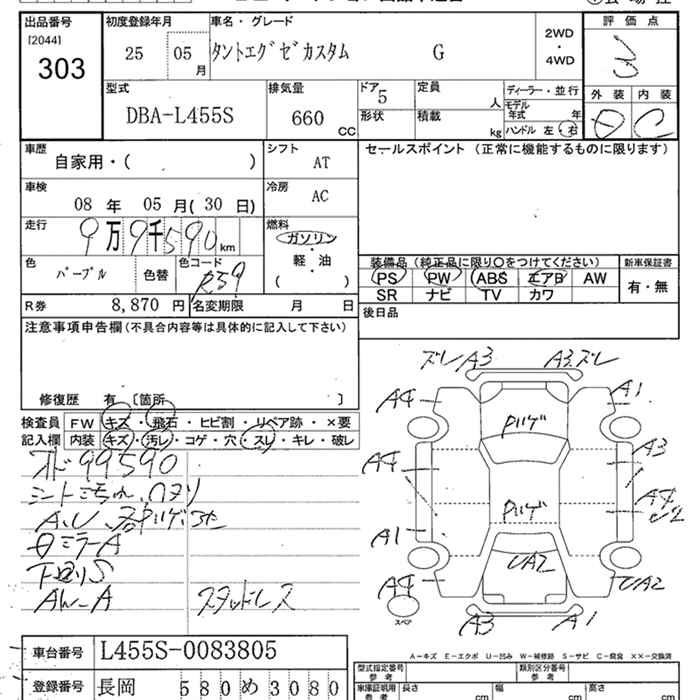 出品番号 初度登録年月 車名・グレード 評価点
[2044] 303 25 05月 タントエグゼカスタム G 2WD・4WD 3
型式 排気量 ドア 定員 ディーラー・並行 外装 内装
DBA-L455S 660 CC 5 人 モデル年式 年 C
形状 積載 kg ハンドル 左・右
車歴 シフト セールスポイント (正常に機能するものに限ります)
自家用・( ) AT
車検 冷房
08年 05月(30日) AC
走行 燃料
9万9千590km ガソリン
軽・油
( )
色 色替 色コード 装備品 (純正品に限り○をつけてください) 新車保証書
パープル R59 PS PW ABS エアB AW 有・無
SR ナビ TV カワ
R券 8,870円 名変期限 月 日 後日品
注意事項申告欄(不具合内容等は具体的に記入して下さい)
修復歴 有 〔箇所 〕
検査員 FW キズ・飛石・ヒビ割・リペア跡・×要
記入欄 内装 キズ・汚レ・コゲ・穴・スレ・キレ・破レ
99590
ミラーA
下回りS
AW-A スタッドレス
ズレA3 A3ズレ
A4 A1
A4 A3
A4
A1
A4 UA2
A3 A1
UA2
スペア
A-キズ E-エクボ U-凹み W-補修跡 S-サビ C-腐食 ××-交換済
車台番号 L455S-0083805 型式指定番号 参考 類別区分番号 参考
登録番号 長岡 580 め 3080 車庫証明用 参考 長さ cm 幅 cm 高さ cm